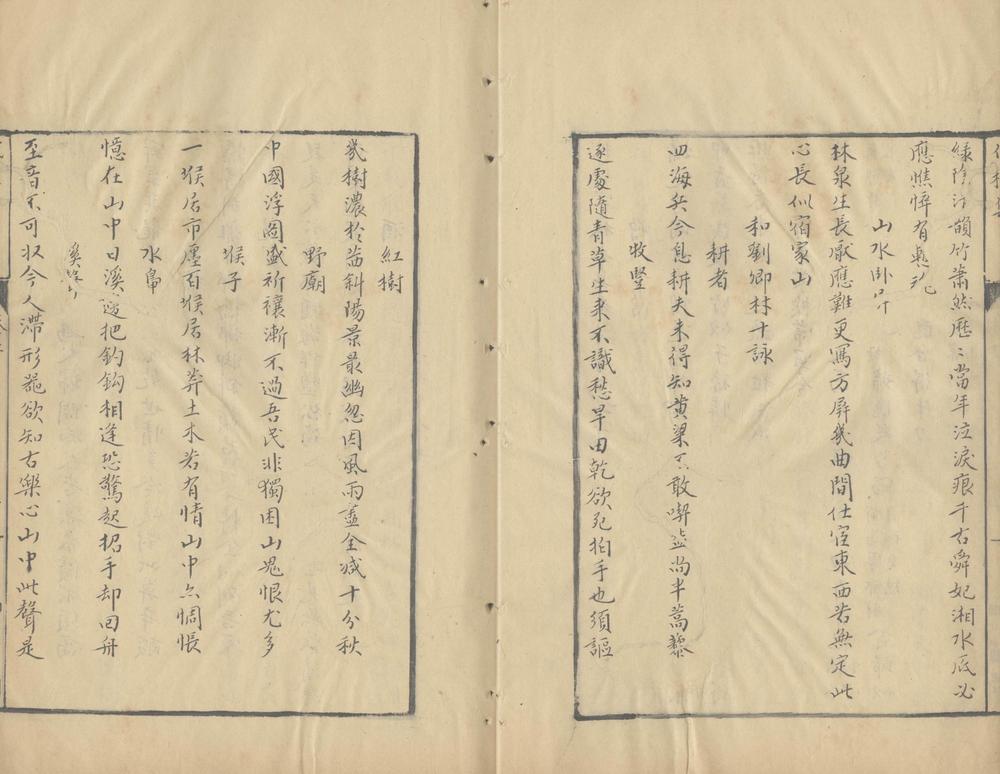 綠陰沙頭竹蕭然歷〻當年泣淚痕千古舜妃湘水底必
應憔悴有鬼
山水臥屏
林泉生長厭應難更寫方屏幾曲間仕宦東西若無定此
心長似宿家山
和劉卿材十詠
耕者
四海兵今息耕夫未得知黃粱不敢喫盡尚半蒿藜
牧豎
逐處隨青草生來不識愁旱田乾欲死拍手也須謳
紅樹
幾樹濃於茜斜陽景最幽忽因風雨盡全減十分秋
野廟
中國浮圖盛祈禳漸不過吾民非獨困山鬼恨尤多
堠子
一堠居市廛百堠居林莽土木若有情山中亦惆悵
水鳧
憶在山中日溪邊把釣鈎相逢恐驚起招手却回舟
溪
至音不可狀今人滯形器欲知古樂心山中此聲是